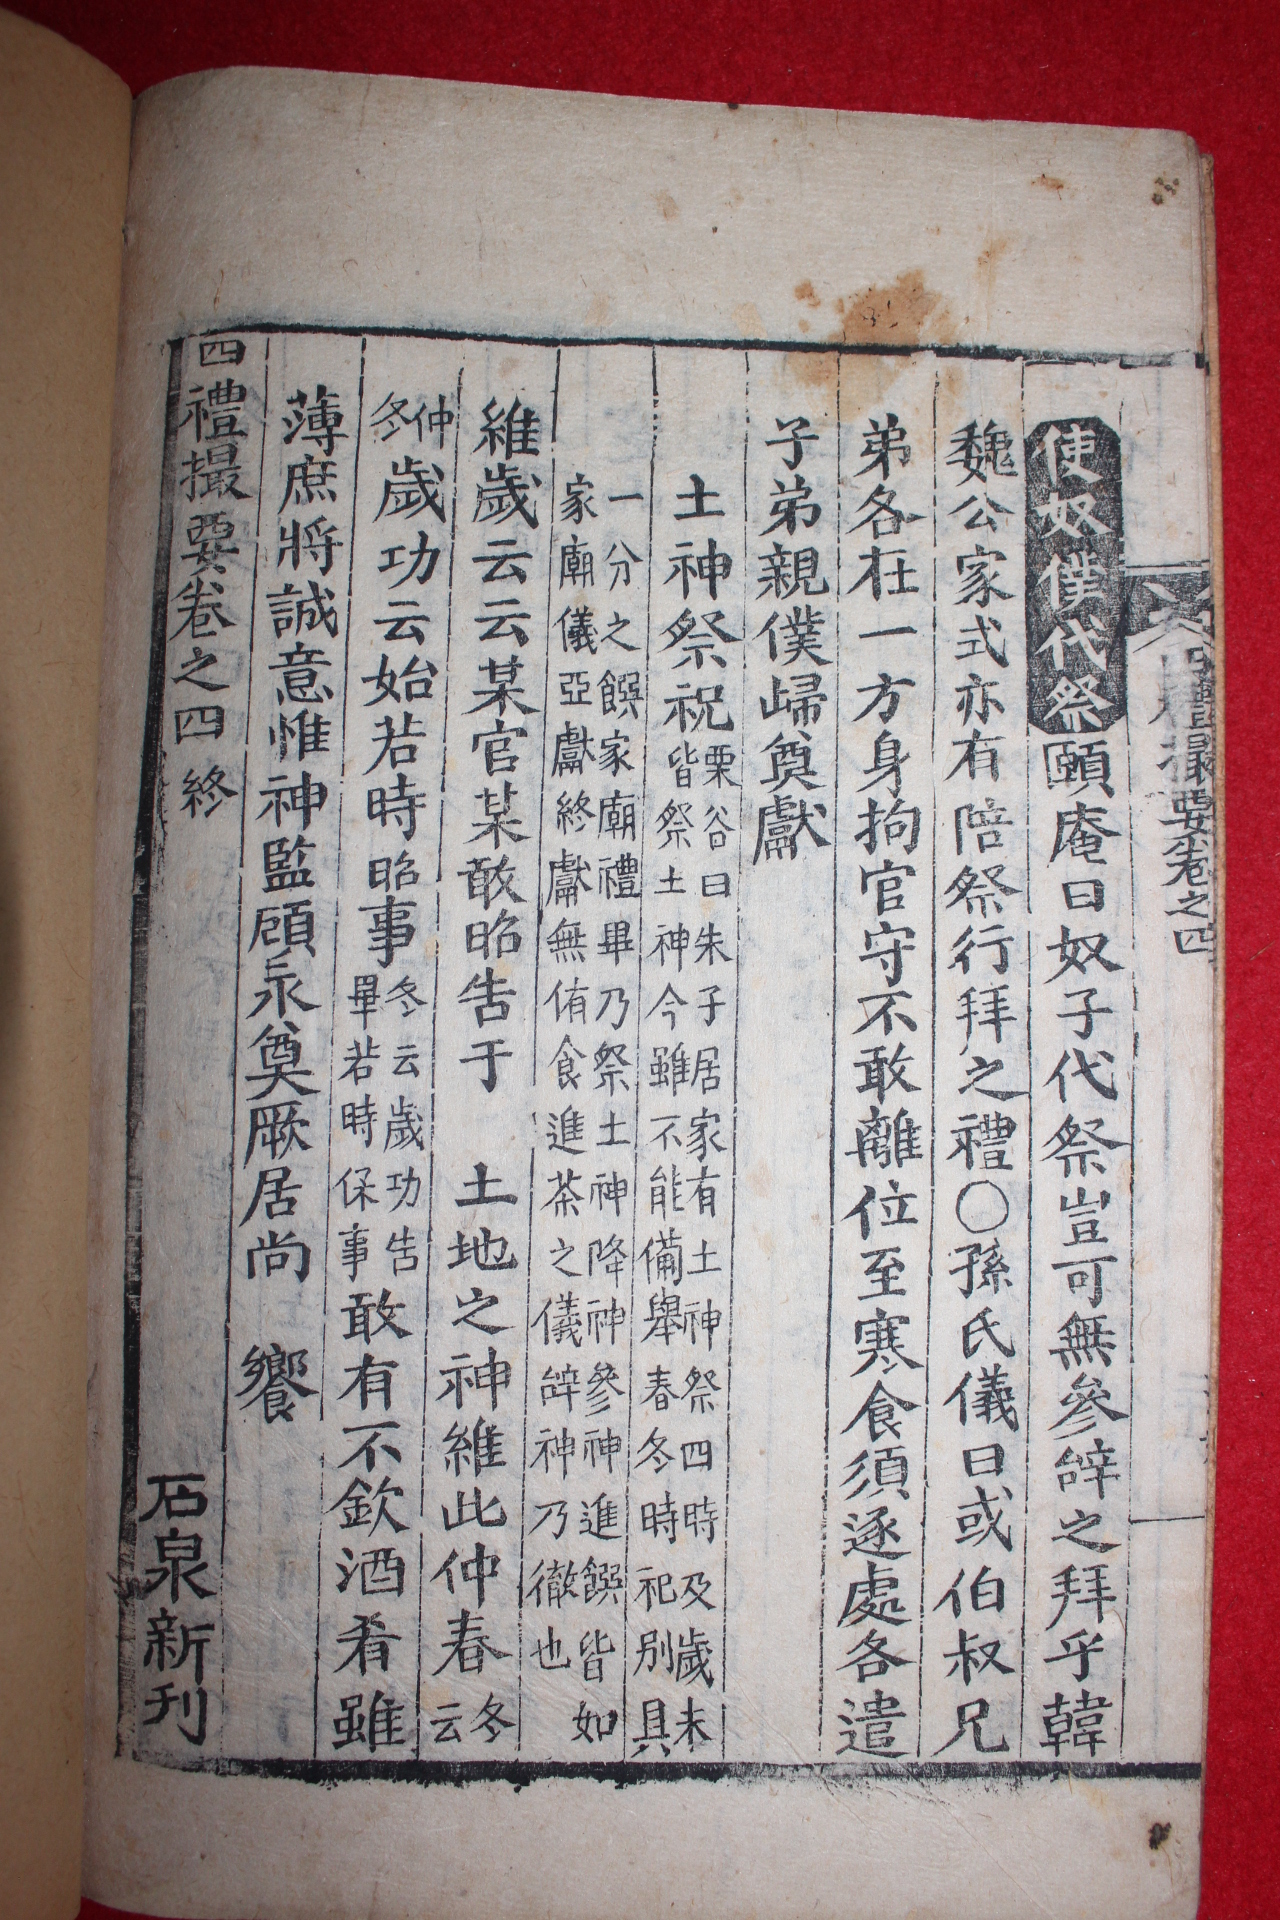 四禮撮要卷之四
使奴僕代祭頤庵曰奴子代祭豈可無參辤之拜乎韓
魏公家式亦有陪祭行拜之禮○孫氏儀曰或伯叔兄
弟各在一方身拘官守不敢離位至寒食須逐處各遣
子弟親僕歸奠獻
土神祭祝栗谷曰朱子居家有土神祭四時及歲末
皆祭土神今雖不能備擧春冬時祀別具
一分之饌家廟禮畢乃祭土神降神參神進饌皆如
家廟儀亞獻終獻無侑食進茶之儀辤神乃徹也
維歲云云某官某敢昭告于 土地之神維此仲春冬云
仲冬歲功云始若時昭事冬云歲功告
畢若時保事敢有不欽酒肴雖
薄庶將誠意惟神監顧永奠厥居尚 饗
四禮撮要卷之四 終
石泉新刊